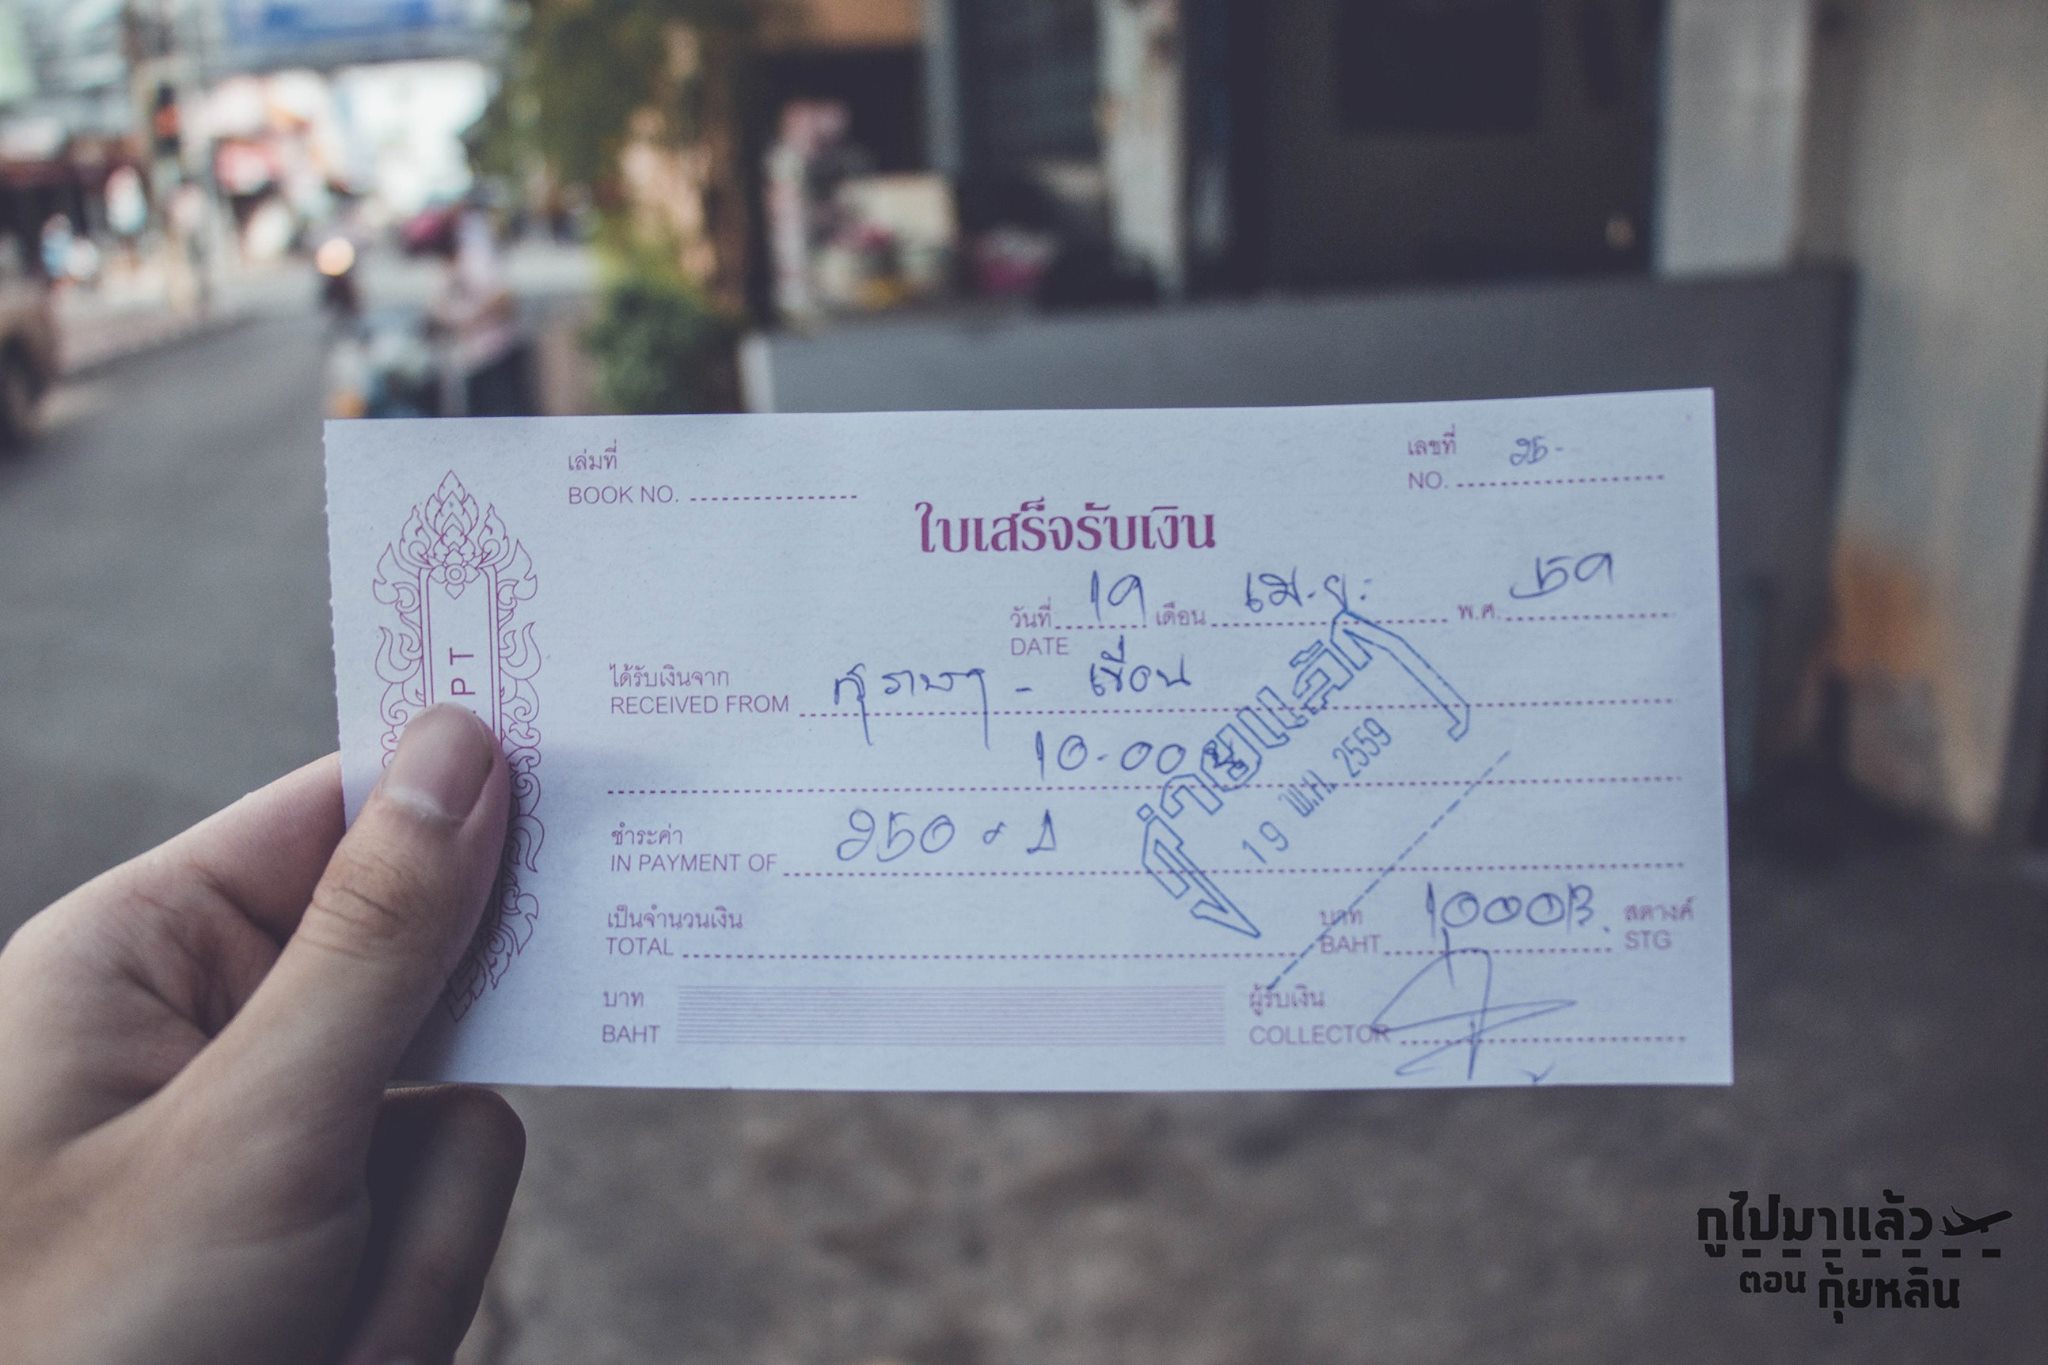 เล่มที่
BOOK NO.
เลขที่ 25-
NO.
ใบเสร็จรับเงิน
วันที่ 19 เดือน เม.ย. พ.ศ. 59
DATE
ได้รับเงินจาก
RECEIVED FROM
10.00 น.
จ่ายแล้ว
19 พ.ค. 2559
ชำระค่า
IN PAYMENT OF 250
เป็นจำนวนเงิน
TOTAL
บาท 1000B. สตางค์
BAHT STG
บาท
BAHT
ผู้รับเงิน
COLLECTOR
PT
กูไปมาแล้ว
ตอน กุ้ยหลิน